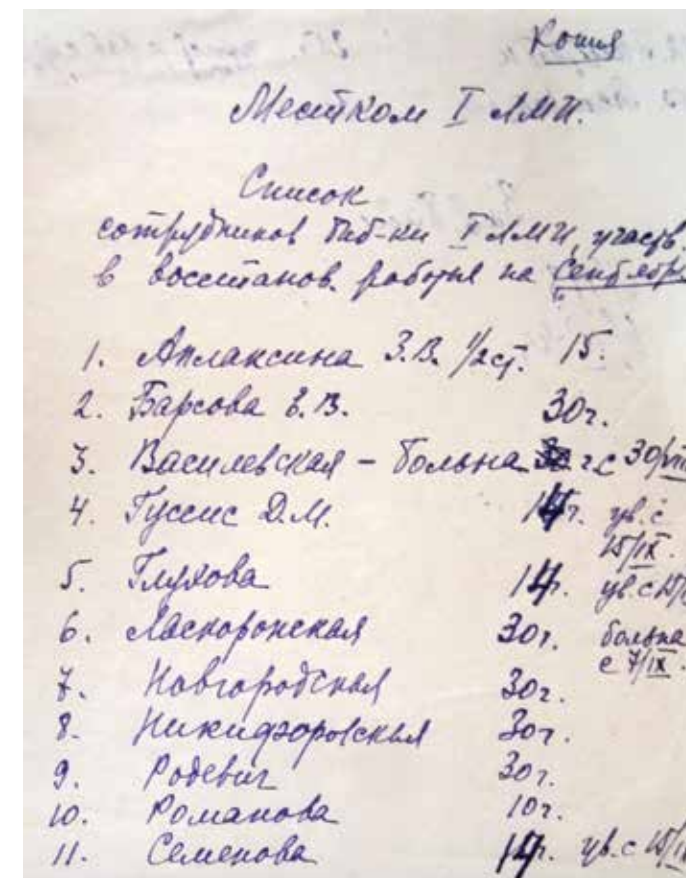 Копия
Местком I ЛМИ.
Список
сотрудников биб-ки I ЛМИ, участв.
в восстанов. работах на Сентябрь
1. Аплаксина З.В. 1/2 ст. 15.
2. Барсова Е.В. 30 г.
3. Василевская – больна с 30/VIII
4. Гуссис Д.М. 14 г. ув. с
15/IX.
5. Глухова 14 г. ув. с 15/
6. Ласкоронская 30 г. больна
с 7/IX.
7. Новгородская 30 г.
8. Никифоровская 30 г.
9. Родевич 30 г.
10. Романова 10 г.
11. Семенова 14 г. ув. с 15/IX